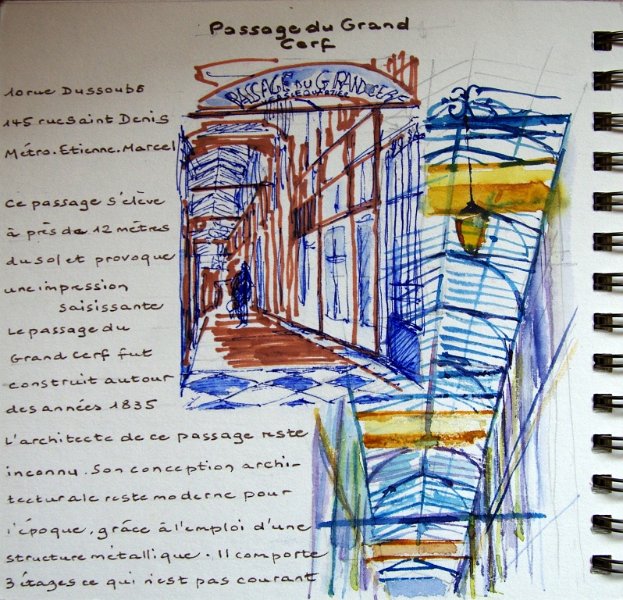 Passage du Grand
Cerf
10 rue Dussoubs
145 rue Saint Denis
Métro. Etienne. Marcel
Ce passage s'élève
à près de 12 mètres
du sol et provoque
une impression
saisissante
Le passage du
Grand Cerf fut
construit autour
des années 1835
L'architecte de ce passage reste
inconnu. Son conception archi-
tecturale reste moderne pour
l'époque, grâce à l'emploi d'une
structure métallique. Il comporte
3 étages ce qui n'est pas courant
PASSAGE DU GRAND CERF